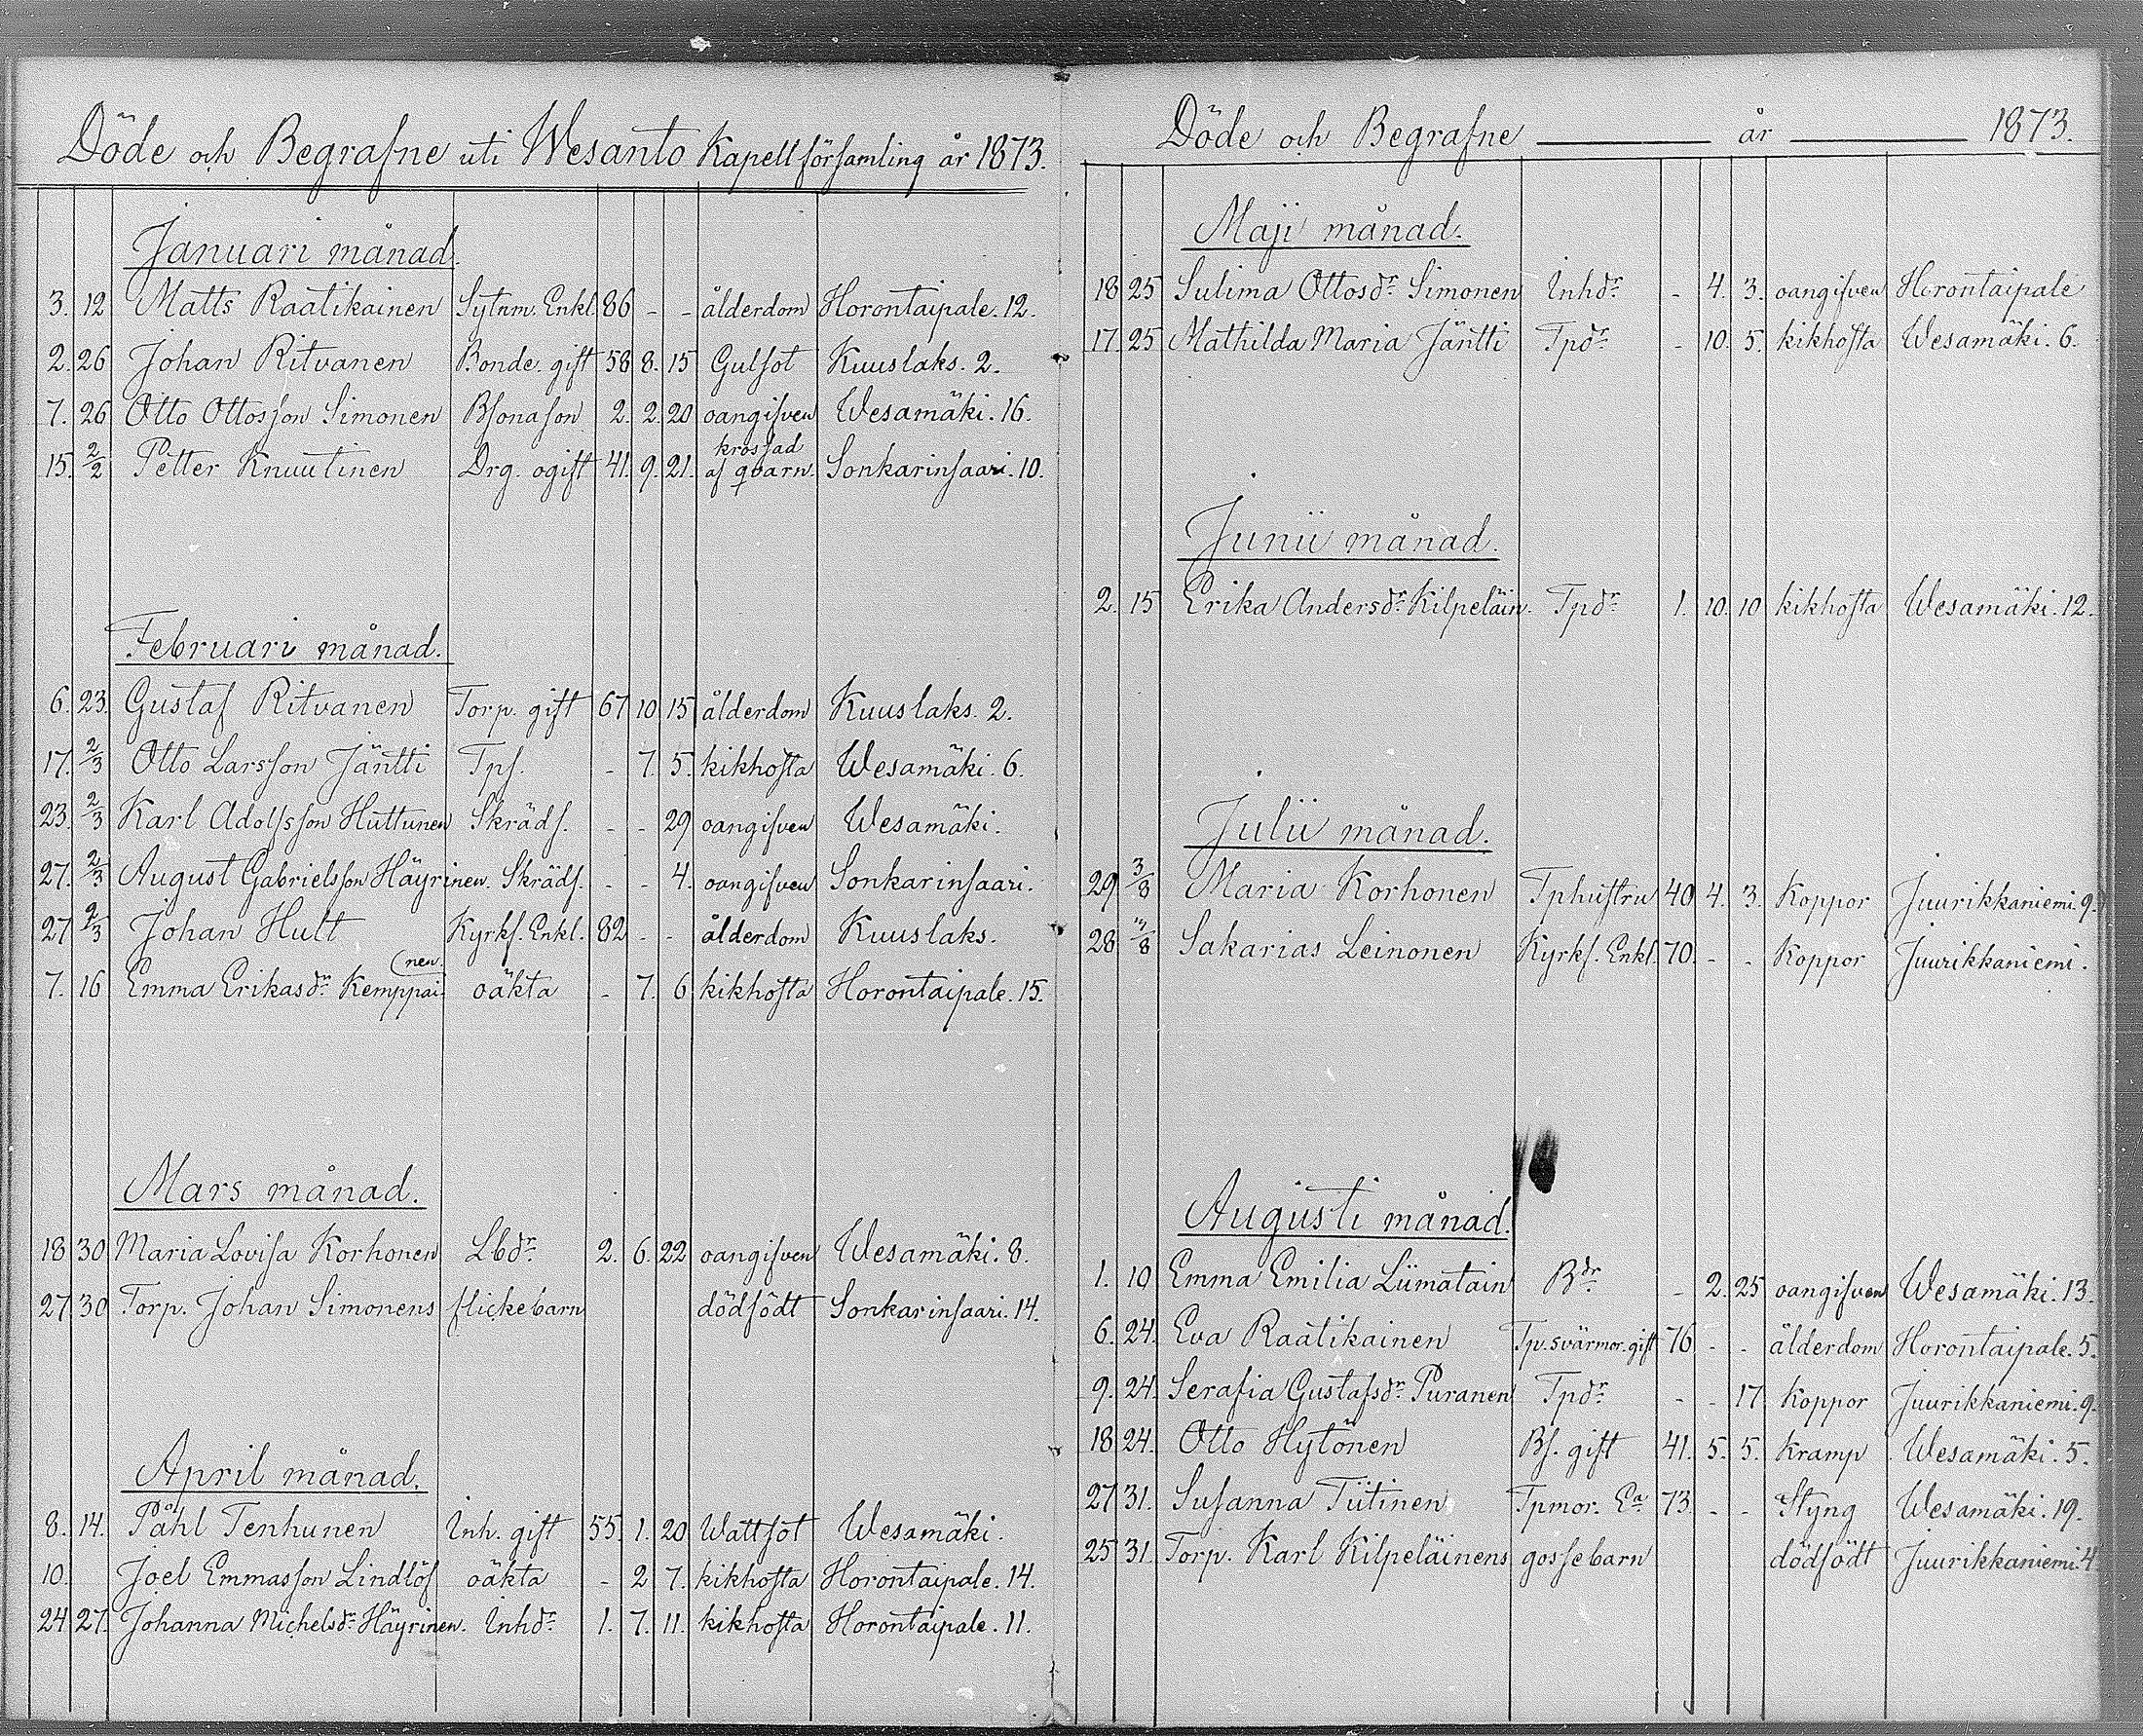 Döde och Begrafne uti Wesanto Kapellförsamling år 1873.
Januari månad.
3. 12 Matts Raatikainen Sytnm. Enkl. 86 - - ålderdom Horontaipale. 12.
2. 26 Johan Ritvanen Bonde. gift 58 8. 15 Gulsot Kuuslaks. 2.
7. 26 Otto Ottosson Simonen Bsonason 2. 2. 20 oangifven Wesamäki. 16.
15. 2/2 Petter Knuutinen Drg. ogift 41. 9. 21. krossad af qvarn. Sonkarinsaari. 10.
Februari månad.
6. 23. Gustaf Ritvanen Torp. gift 67 10 15 ålderdom Kuuslaks. 2.
17. 2/3 Otto Larsson Jäntti Tps. - 7. 5. kikhosta Wesamäki. 6.
23. 2/3 Karl Adolfsson Huttunen Skräds. - - 29 oangifven Wesamäki.
27. 2/3 August Gabrielsson Häyrinen. Skräds. - - 4. oangifven Sonkarinsaari.
27 2/3 Johan Hult Kyrkf. Enkl. 82 - - ålderdom Kuuslaks.
7. 16 Emma Erikasdr. Kemppai(nen. oäkta - 7. 6 kikhosta Horontaipale. 15.
Mars månad.
18 30 Maria Lovisa Korhonen Lbdr. 2. 6. 22 oangifven Wesamäki. 8.
27 30 Torp. Johan Simonens flickebarn dödfödt Sonkarinsaari. 14.
April månad.
8. 14. Påhl Tenhunen Inh. gift 55. 1. 20 Wattsot Wesamäki.
10. Joel Emmasson Lindlöf oäkta - 2 7. kikhosta Horontaipale. 14.
24 27. Johanna Michelsdr. Häyrinen. Inhdr. 1. 7. 11. kikhosta Horontaipale. 11.
Döde och Begrafne år 1873.
Maji månad.
18 25 Sulima Ottosdr. Simonen Inhdr. - 4. 3. oangifven Horontaipale
17. 25 Mathilda Maria Jäntti Tpdr. - 10. 5. kikhosta Wesamäki. 6.
Junii månad.
2. 15 Erika Andersdr. Kilpeläin. Tpdr. 1. 10. 10 kikhosta Wesamäki. 12.
Julii månad.
29 3/8 Maria Korhonen Tphustru 40 4. 3. Koppor Juurikkaniemi. 9.
28 "/8 Sakarias Leinonen Kyrkf. Enkl. 70. - - Koppor Juurikkaniemi.
Augusti månad.
1. 10 Emma Emilia Liimatain Bdr. - 2. 25 oangifven Wesamäki. 13.
6. 24. Eva Raatikainen Tp. svärmor. gift 76 - - ålderdom Horontaipale. 5.
9. 24. Serafia Gustafsdr. Puranen Tpdr. - - 17. Koppor Juurikkaniemi. 9.
18 24. Otto Hytönen Bs. gift 41. 5. 5. Kramp Wesamäki. 5.
27 31. Susanna Tiitinen Tpmor. Ea 73. - - Styng Wesamäki. 19.
25 31. Torp. Karl Kilpeläinens gossebarn dödfödt Juurikkaniemi. 4